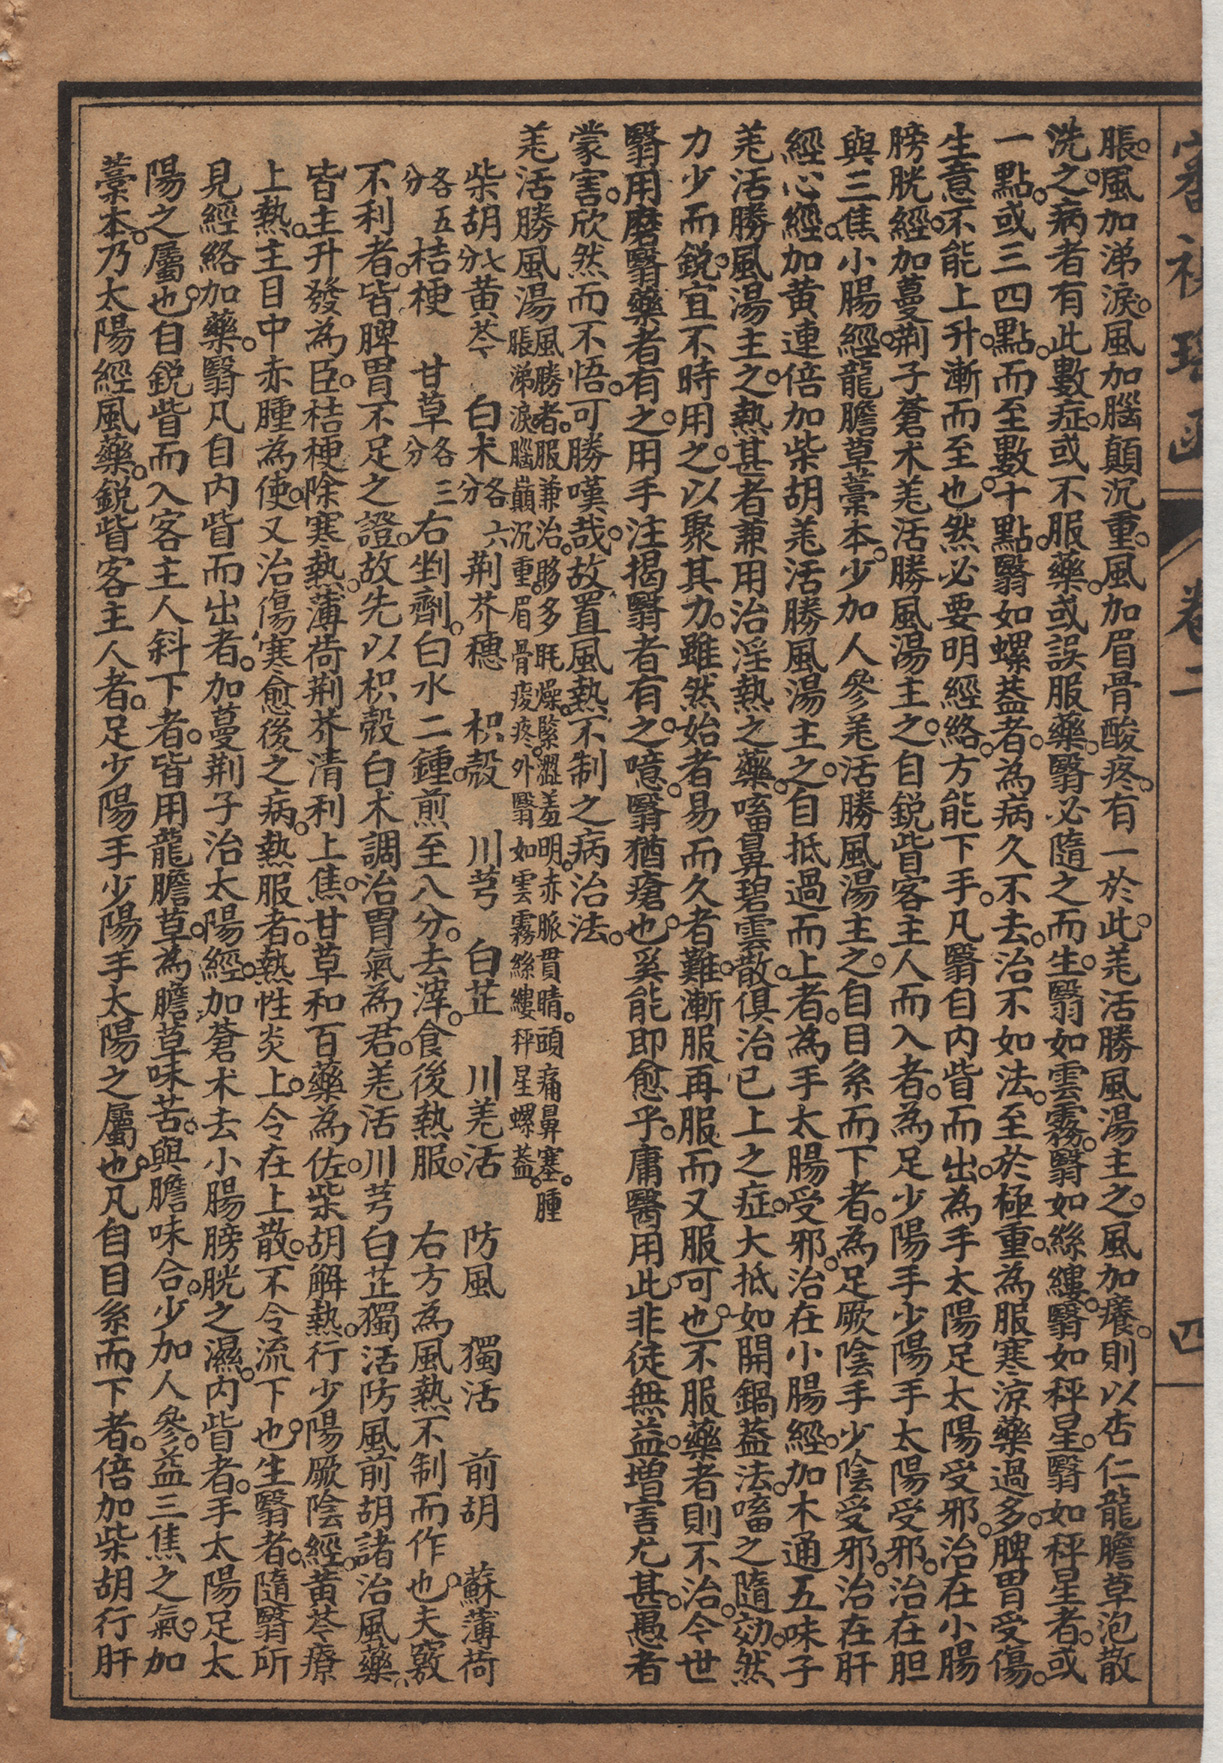 脹。風加涕淚。風加腦顛沉重。風加眉骨酸疼。有一於此。羌活勝風湯主之。風加癢。則以杏仁龍膽草泡散
洗之。病者有此數症。或不服藥。或誤服藥。翳必隨之而生。翳如雲霧。翳如絲縷。翳如秤星。翳如秤星者。或
一點。或三四點。而至數十點。翳如螺蓋者。為病久不去。治不如法。至於極重。為服寒涼藥過多。脾胃受傷。
生意不能上升。漸而至也。然必要明經絡。方能下手。凡翳自內眥而出。為手太陽足太陽受邪。治在小腸
膀胱經。加蔓荆子蒼朮。羌活勝風湯主之。自銳眥客主人而入者。為足少陽手少陽手太陽受邪。治在胆
與三焦小腸經。龍膽草藁本。少加人參。羌活勝風湯主之。自目系而下者。為足厥陰手少陰受邪。治在肝
經心經。加黃連倍加柴胡。羌活勝風湯主之。自抵過而上者。為手太腸受邪。治在小腸經。加木通五味子
羌活勝風湯主之。熱甚者兼用治淫熱之藥。嗃鼻碧雲散。俱治已上之症。大抵如開鍋蓋法。嗃之隨効。然
力少而銳。宜不時用之。以聚其力。雖然始者易而久者難。漸服再服而又服可也。不服藥者則不治。今世
翳用磨翳藥者有之。用手注揭翳者有之。噫。翳猶瘡也。奚能即愈乎。庸醫用此。非徒無益。增害尤甚。愚者
蒙害。欣然而不悟。可勝嘆哉。故置風熱不制之病治法。
羌活勝風湯 風勝者。服兼治。眵多眊燥。緊澀羞明。赤脈貫睛。頭痛鼻塞。腫
脹涕淚腦巔沉重。眉骨痠疼。外翳如雲霧絲縷秤星螺蓋。
柴胡七分 黃芩 白朮各六分 荆芥穗 枳殼 川芎 白芷 川羌活 防風 獨活 前胡 蘇薄荷
各五分 桔梗 甘草各三分 右剉劑。白水二鍾。煎至八分。去滓。食後熱服。 右方為風熱不制而作也。夫竅
不利者。皆脾胃不足之證。故先以枳殼白朮調治胃氣為君。羌活川芎白芷獨活防風前胡諸治風藥
皆主升發為臣。桔梗除寒熱。薄荷荆芥清利上焦。甘草和百藥為佐。柴胡解熱。行少陽厥陰經。黃芩療
上熱。主目中赤腫為使。又治傷寒愈後之病。熱服者。熱性炎上。令在上散。不令流下也。生翳者。隨翳所
見經絡加藥。翳凡自內眥而出者。加蔓荆子治太陽經。加蒼朮去小腸膀胱之濕。內眥者。手太陽足太
陽之屬也。自銳眥而入客主人斜下者。皆用龍膽草。為膽草味苦。與膽味合。少加人參。益三焦之氣。加
藁本。乃太陽經風藥。銳眥客主人者。足少陽手少陽手太陽之屬也。凡自目系而下者。倍加柴胡行肝
卷二
四